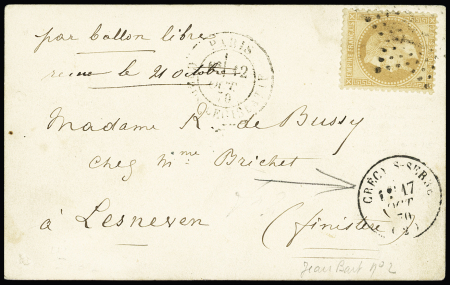 par ballon libre
PARIS
12
OCT
70
le 21 octobre
Madame R. de Bussy
chez Mme Brichet
CRÉCY-S-SERRE
17
OCT
70
à Lesneven (finistère)
Jean Bart No 2